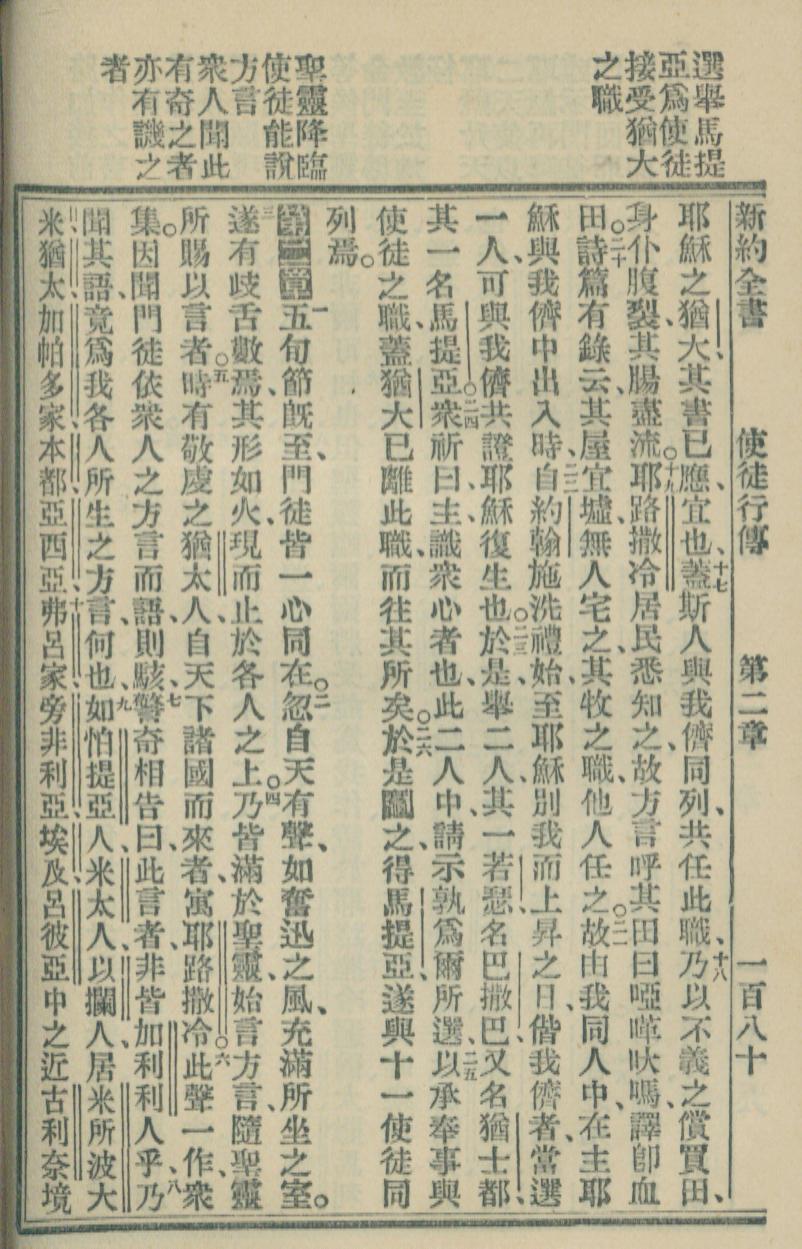 新約全書 使徒行傳 第二章 一百八十
選舉馬提
亞爲使徒
接受猶大
之職
耶穌之猶大、其書已應、宜也、十七蓋斯人與我儕同列、共任此職、十八乃以不義之償買田、
身仆腹裂、其腸盡流。十九耶路撒冷居民悉知之、故方言呼其田曰啞嘩呔嗎、譯卽血
田。二十詩篇有錄云、其屋宜墟、無人宅之、其牧之職、他人任之。二一故由我同人中、在主耶
穌與我儕中出入時、二二自約翰施洗禮始、至耶穌別我而上昇之日、偕我儕者、當選
一人、可與我儕共證耶穌復生也。二三於是舉二人、其一若瑟、名巴撒巴、又名猶士都、
其一名馬提亞。二四衆祈曰、主識衆心者也、此二人中、請示孰爲爾所選、二五以承奉事與
使徒之職、蓋猶大已離此職、而往其所矣。二六於是鬮之、得馬提亞、遂與十一使徒同
列焉。
聖靈降臨
使徒能說
方言
衆人聞此
有奇之者
亦有譏之
者
第二章 一五旬節旣至、門徒皆一心同在。二忽自天有聲、如奮迅之風、充滿所坐之室。
三遂有歧舌數焉、其形如火、現而止於各人之上。四乃皆滿於聖靈、始言方言、隨聖靈
所賜以言者。五時有敬虔之猶太人、自天下諸國而來者、寓耶路撒冷。六此聲一作、衆
集、因聞門徒依衆人之方言而語、則駭。七警奇相告曰、此言者、非皆加利利人乎、八乃
聞其語、竟爲我各人所生之方言、何也、九如怕提亞人、米太人、以攔人、居米所波大
米、猶太、加帕多家、本都、亞西亞、十弗呂家、旁非利亞、埃及、呂彼亞中之近古利奈境